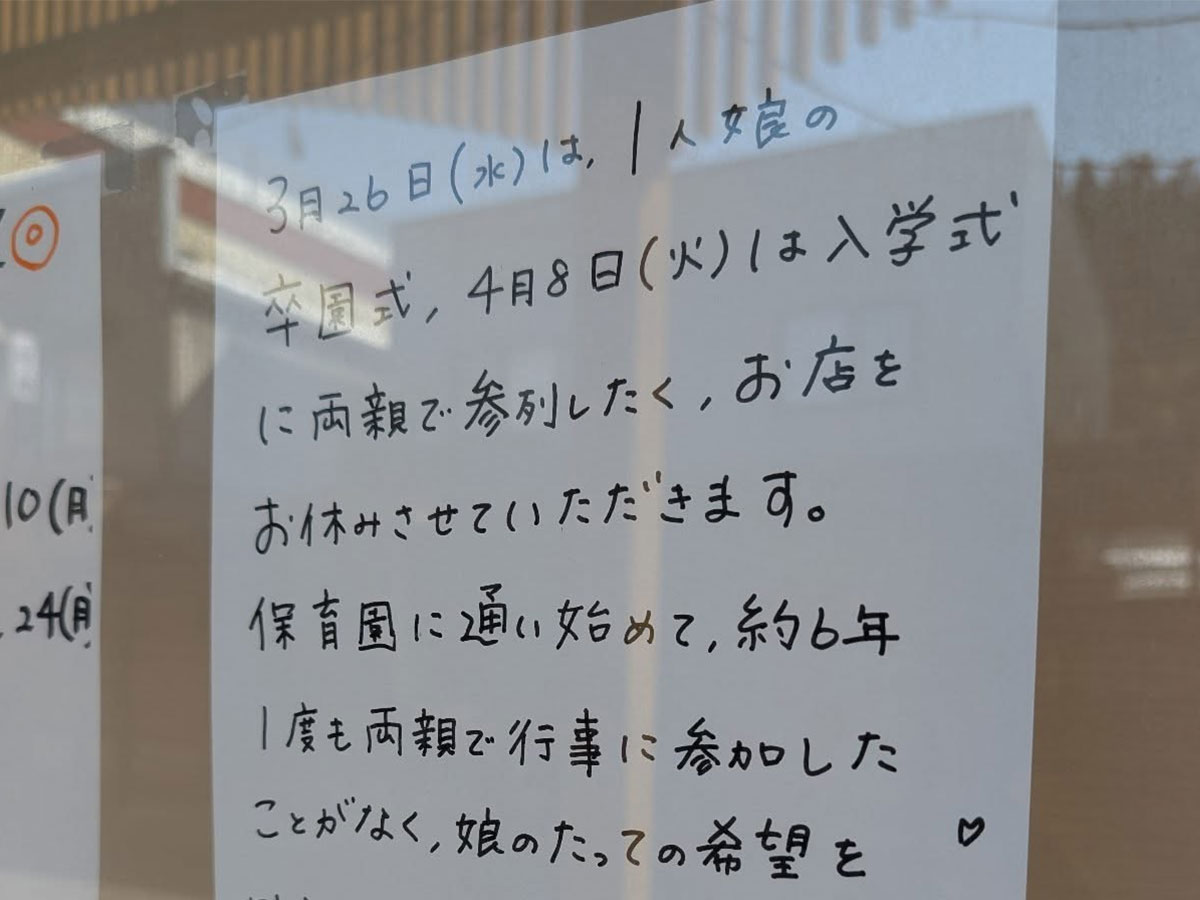 3月26日(水)は、1人娘の
卒園式、4月8日(火)は入学式
に両親で参列したく、お店を
お休みさせていただきます。
保育園に通い始めて、約6年
1度も両親で行事に参加した
ことがなく、娘のたっての希望を
♡
◎
10(月
24(月)